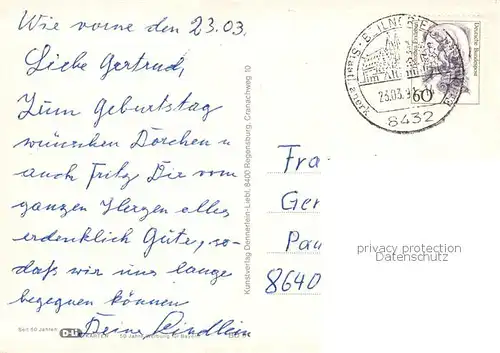 Wie vorne den 23.03.
Liebe Gertrud,
Zum Geburtstag
wünschen Dorchen u
auch Fritz Dir vom
ganzen Herzen alles
erdenklich Gute, so-
daß wir uns lange
begegnen können
Deine
Seit 50 Jahren
50 Jahre Werbung für Bayern
Kunstverlag Dennerlein-Liebl, 8400 Regensburg, Cranachweg 10
BEILNGRIES
Im Altmühltal
23.03.9
8432
Deutsche Bundespost
60
Fra
Ger
Pau
8640
privacy protection
Datenschutz